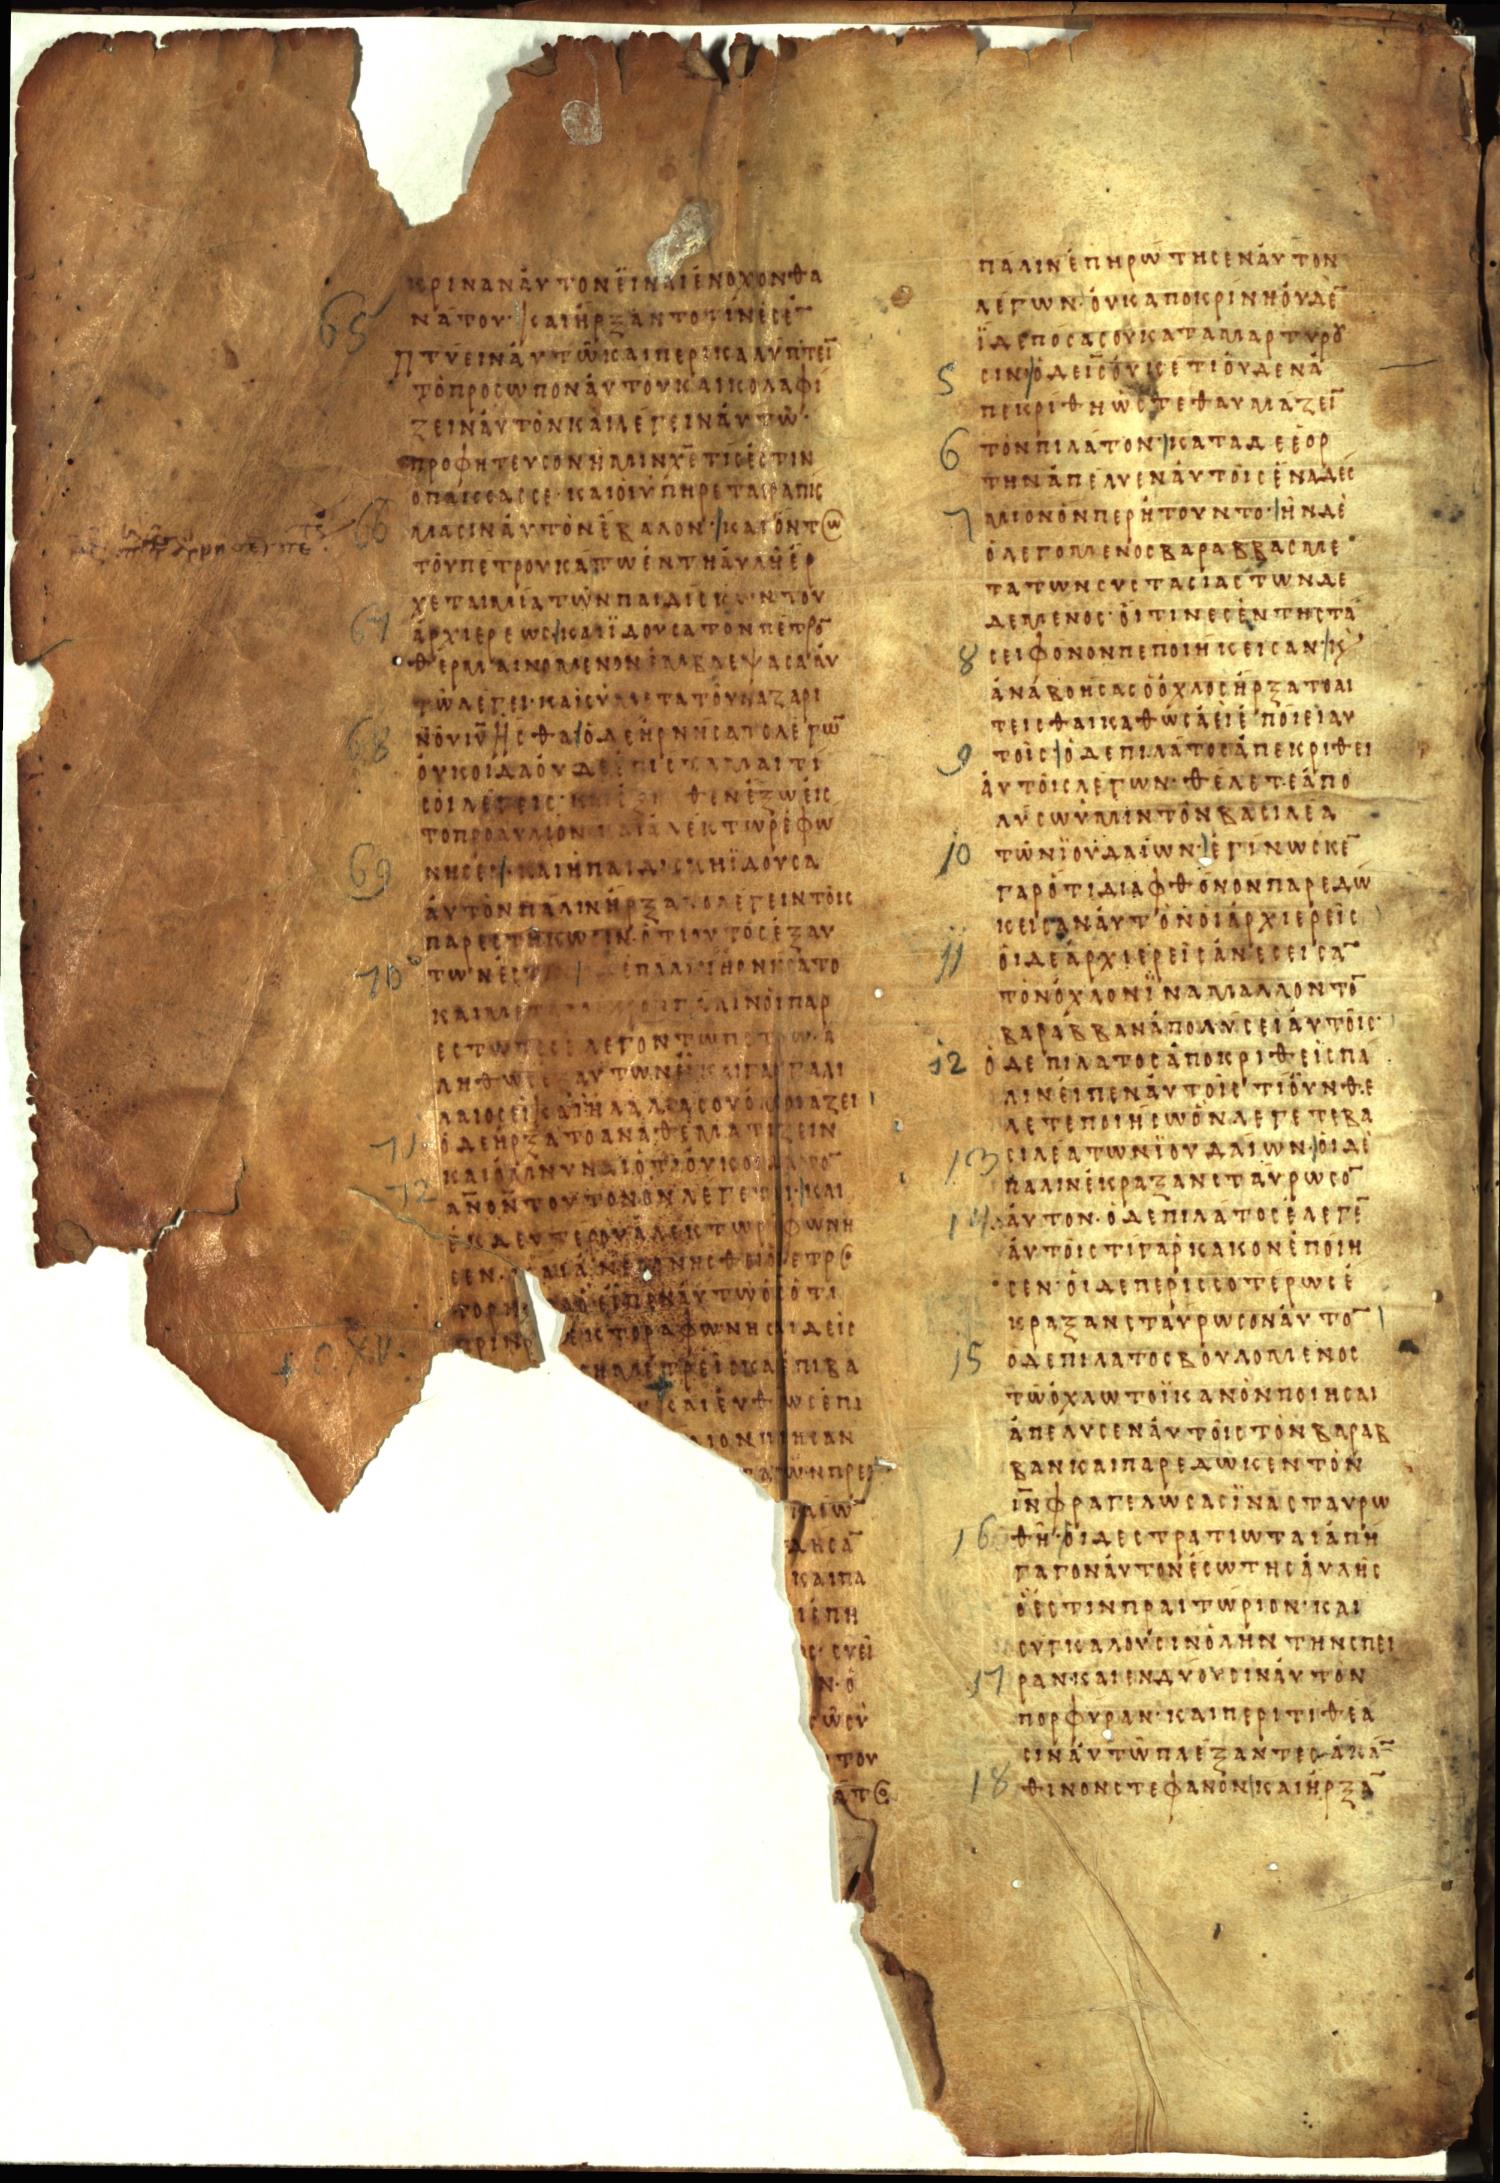 ΚΡΙΝΑΝ ΑΥΤΟΝ ΕΙΝΑΙ ΕΝΟΧΟΝ ΘΑ
65 ΝΑΤΟΥ· ΚΑΙ ΗΡΞΑΝΤΟ ΤΙΝΕΣ ΕΜ
ΠΤΥΕΙΝ ΑΥΤΩ ΚΑΙ ΠΕΡΙΚΑΛΥΠΤΕΙ̅
ΤΟ ΠΡΟΣΩΠΟΝ ΑΥΤΟΥ ΚΑΙ ΚΟΛΑΦΙ
ΖΕΙΝ ΑΥΤΟΝ ΚΑΙ ΛΕΓΕΙΝ ΑΥΤΩ·
ΠΡΟΦΗΤΕΥΣΟΝ ΗΜΙΝ Χ̅Ε̅ ΤΙΣ ΕΣΤΙΝ
Ο ΠΑΙΣΑΣ ΣΕ· ΚΑΙ ΟΙ ΥΠΗΡΕΤΑΙ ΡΑΠΙΣ
66 ΜΑΣΙΝ ΑΥΤΟΝ ΕΒΑΛΟΝ· ΚΑΙ ΟΝΤΟΣ
ΤΟΥ ΠΕΤΡΟΥ ΚΑΤΩ ΕΝ ΤΗ ΑΥΛΗ ΕΡ
ΧΕΤΑΙ ΜΙΑ ΤΩΝ ΠΑΙΔΙΣΚΩΝ ΤΟΥ
67 ΑΡΧΙΕΡΕΩΣ ΚΑΙ ΪΔΟΥΣΑ ΤΟΝ ΠΕΤΡΟ̅
ΘΕΡΜΑΙΝΟΜΕΝΟΝ ΕΜΒΛΕΨΑΣΑ ΑΥ
ΤΩ ΛΕΓΕΙ· ΚΑΙ ΣΥ ΜΕΤΑ ΤΟΥ ΝΑΖΑΡΙ
68 ΝΟΥ Ι̅Υ̅ ΗΣΘΑ Ο ΔΕ ΗΡΝΗΣΑΤΟ ΛΕΓΩ̅
ΟΥΚ ΟΙΔΑ ΟΥΔΕ ΕΠΙΣΤΑΜΑΙ ΤΙ
ΣΟΙ ΛΕΓΕΙΣ· ΘΕΝ ΕΞΩ ΕΙΣ
ΤΟ ΠΡΟΑΥΛΙΟΝ ΚΑΙ ΑΛΕΚΤΩΡ ΕΦΩ
69 ΝΗΣΕΝ· ΚΑΙ Η ΠΑΙΔΙΣΚΗ ΪΔΟΥΣΑ
ΑΥΤΟΝ ΠΑΛΙΝ ΗΡΞΑΤΟ ΛΕΓΕΙΝ ΤΟΙΣ
ΠΑΡΕΣΤΗΚΩΣΙΝ· ΟΤΙ ΟΥΤΟΣ ΕΞ ΑΥ
70 ΤΩΝ ΕΣΤΙΝ ΠΑΛΙΝ ΗΡΝΗΣΑΤΟ
ΚΑΙ ΜΕΤΑ ΠΑΛΙΝ ΟΙ ΠΑΡ
ΕΣΤΩΤΕΣ ΕΛΕΓΟΝ ΤΩ ΠΕΤΡΩ· Α
ΛΗΘΩΣ ΕΞ ΑΥΤΩΝ ΕΙ ΚΑΙ ΓΑΡ ΓΑΛΙ
ΛΑΙΟΣ ΕΙ ΚΑΙ Η ΛΑΛΙΑ ΣΟΥ ΟΜΟΙΑΖΕΙ
71 Ο ΔΕ ΗΡΞΑΤΟ ΑΝΑΘΕΜΑΤΙΖΕΙΝ
ΚΑΙ ΟΜΝΥΝΑΙ ΟΤΙ ΟΥΚ ΟΙΔΑ ΤΟ̅
72 Α̅Ν̅Ο̅Ν̅ ΤΟΥΤΟΝ ΟΝ ΛΕΓΕΤΕ· ΚΑΙ
ΕΚ ΔΕΥΤΕΡΟΥ ΑΛΕΚΤΩΡ ΕΦΩΝΗ
ΣΕΝ· ΚΑΙ ΑΝΕΜΝΗΣΘΗ Ο ΠΕΤΡΟΣ
ΤΟ ΡΗΜΑ Ο ΕΙΠΕΝ ΑΥΤΩ Ο Ι̅Σ̅ ΟΤΙ
ΠΡΙΝ ΕΚΤΟΡΑ ΦΩΝΗΣΑΙ ΔΕΙΣ
+ C. XV.
ΣΗ ΜΕ ΤΡΕΙΣ ΚΑΙ ΕΠΙΒΑ
ΚΑΙ ΕΥΘΕΩΣ ΕΠΙ
ΛΙΟΝ ΠΟΙΗΣΑΝ
ΤΩΝ ΠΡΕΣ
ΚΑΙ Ο̅
ΔΗΣΑ̅
ΚΑΙ ΠΑ
ΕΠΗ
ΣΥ ΕΙ
Ν· Ο
ΣΥ
ΤΟΥ
ΠΑΛΙΝ ΕΠΗΡΩΤΗΣΕΝ ΑΥΤΟΝ
ΛΕΓΩΝ· ΟΥΚ ΑΠΟΚΡΙΝΗ ΟΥΔΕ̅
ΪΔΕ ΠΟΣΑ ΣΟΥ ΚΑΤΑΜΑΡΤΥΡΟΥ
5 ΣΙΝ· Ο ΔΕ Ι̅Σ̅ ΟΥΚΕΤΙ ΟΥΔΕΝ Α
ΠΕΚΡΙΘΗ ΩΣΤΕ ΘΑΥΜΑΖΕΙ̅
6 ΤΟΝ ΠΙΛΑΤΟΝ· ΚΑΤΑ ΔΕ ΕΟΡ
ΤΗΝ ΑΠΕΛΥΕΝ ΑΥΤΟΙΣ ΕΝΑ ΔΕΣ
7 ΜΙΟΝ ΟΝΠΕΡ ΗΤΟΥΝΤΟ· ΗΝ ΔΕ
Ο ΛΕΓΟΜΕΝΟΣ ΒΑΡΑΒΒΑΣ ΜΕ
ΤΑ ΤΩΝ ΣΥΣΤΑΣΙΑΣΤΩΝ ΔΕ
ΔΕΜΕΝΟΣ· ΟΙΤΙΝΕΣ ΕΝ ΤΗ ΣΤΑ
8 ΣΕΙ ΦΟΝΟΝ ΠΕΠΟΙΗΚΕΙΣΑΝ· Κ
ΑΝΑΒΟΗΣΑΣ Ο ΟΧΛΟΣ ΗΡΞΑΤΟ ΑΙ
ΤΕΙΣΘΑΙ ΚΑΘΩΣ ΑΕΙ ΕΠΟΙΕΙ ΑΥ
9 ΤΟΙΣ Ο ΔΕ ΠΙΛΑΤΟΣ ΑΠΕΚΡΙΘΕΙ
ΑΥΤΟΙΣ ΛΕΓΩΝ· ΘΕΛΕΤΕ ΑΠΟ
ΛΥΣΩ ΥΜΙΝ ΤΟΝ ΒΑΣΙΛΕΑ
10 ΤΩΝ ΪΟΥΔΑΙΩΝ· ΕΓΙΝΩΣΚΕ̅
ΓΑΡ ΟΤΙ ΔΙΑ ΦΘΟΝΟΝ ΠΑΡΕΔΩ
ΚΕΙΣΑΝ ΑΥΤΟΝ ΟΙ ΑΡΧΙΕΡΕΙΣ
11 ΟΙ ΔΕ ΑΡΧΙΕΡΕΙΣ ΑΝΕΣΕΙΣΑ̅
ΤΟΝ ΟΧΛΟΝ ΪΝΑ ΜΑΛΛΟΝ ΤΟ̅
ΒΑΡΑΒΒΑΝ ΑΠΟΛΥΣΕΙ ΑΥΤΟΙΣ·
12 Ο ΔΕ ΠΙΛΑΤΟΣ ΑΠΟΚΡΙΘΕΙΣ ΠΑ
ΛΙΝ ΕΙΠΕΝ ΑΥΤΟΙΣ ΤΙ ΟΥΝ ΘΕ
ΛΕΤΕ ΠΟΙΗΣΩ ΟΝ ΛΕΓΕΤΕ ΒΑ
13 ΣΙΛΕΑ ΤΩΝ ΪΟΥΔΑΙΩΝ· ΟΙ ΔΕ
ΠΑΛΙΝ ΕΚΡΑΞΑΝ ΣΤΑΥΡΩΣΟ̅
14 ΑΥΤΟΝ· Ο ΔΕ ΠΙΛΑΤΟΣ ΕΛΕΓΕ̅
ΑΥΤΟΙΣ ΤΙ ΓΑΡ ΚΑΚΟΝ ΕΠΟΙΗ
ΣΕΝ· ΟΙ ΔΕ ΠΕΡΙΣΣΟΤΕΡΩΣ Ε
ΚΡΑΞΑΝ ΣΤΑΥΡΩΣΟΝ ΑΥΤΟ̅
15 Ο ΔΕ ΠΙΛΑΤΟΣ ΒΟΥΛΟΜΕΝΟΣ
ΤΩ ΟΧΛΩ ΤΟ ΪΚΑΝΟΝ ΠΟΙΗΣΑΙ
ΑΠΕΛΥΣΕΝ ΑΥΤΟΙΣ ΤΟΝ ΒΑΡΑΒ
ΒΑΝ ΚΑΙ ΠΑΡΕΔΩΚΕΝ ΤΟΝ
Ι̅Ν̅ ΦΡΑΓΕΛΩΣΑΣ ΪΝΑ ΣΤΑΥΡΩ
16 ΘΗ· ΟΙ ΔΕ ΣΤΡΑΤΙΩΤΑΙ ΑΠΗ
ΓΑΓΟΝ ΑΥΤΟΝ ΕΣΩ ΤΗΣ ΑΥΛΗΣ
Ο ΕΣΤΙΝ ΠΡΑΙΤΩΡΙΟΝ· ΚΑΙ
ΣΥΓΚΑΛΟΥΣΙΝ ΟΛΗΝ ΤΗΝ ΣΠΕΙ
17 ΡΑΝ· ΚΑΙ ΕΝΔΥΟΥΣΙΝ ΑΥΤΟΝ
ΠΟΡΦΥΡΑΝ· ΚΑΙ ΠΕΡΙΤΙΘΕΑ
ΣΙΝ ΑΥΤΩ ΠΛΕΞΑΝΤΕΣ ΑΚΑ̅
18 ΘΙΝΟΝ ΣΤΕΦΑΝΟΝ ΚΑΙ ΗΡΞΑ̅